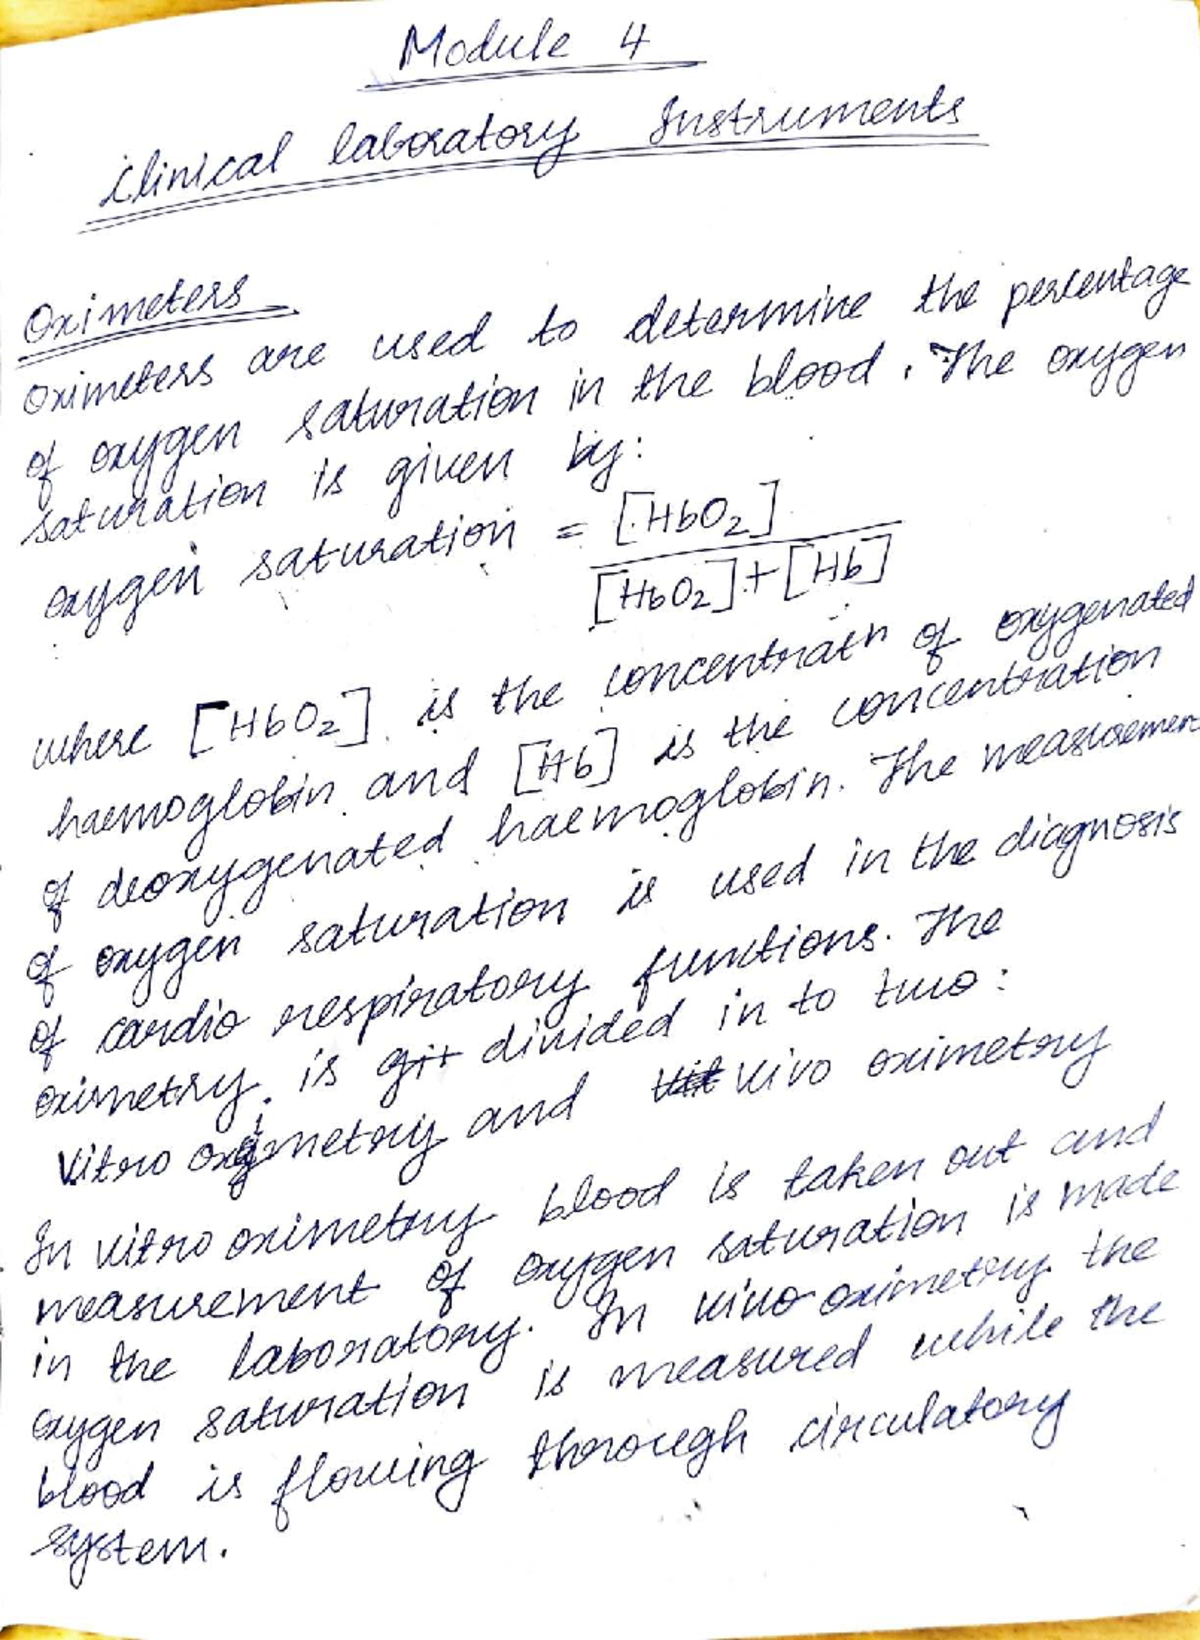 Module 4
Clinical laboratory Instruments
Oximeters
Oximeters are used to determine the percentage
of oxygen saturation in the blood. The oxygen
saturation is given by:
oxygen saturation = [HbO2] / [HbO2]+[Hb]
where [HbO2] is the concentratn of oxygenated
haemoglobin and [Hb] is the concentration
of deoxygenated haemoglobin. The measurement
of oxygen saturation is used in the diagnosis
of cardio respiratory functions. The
oximetry is divided in to two:
Vitro oximetry and vivo oximetry
In vitro oximetry blood is taken out and
measurement of oxygen saturation is made
in the laboratory. In vivo oximetry the
oxygen saturation is measured while the
blood is flowing thorough circulatory
system.